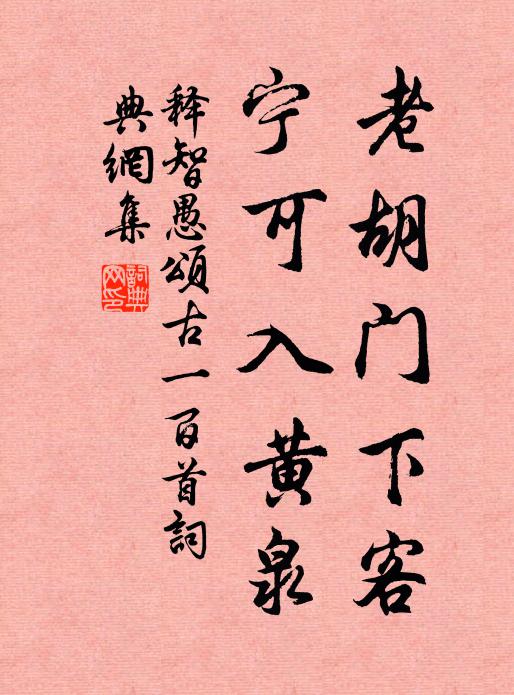 老胡门下客
宁可入黄泉
释智愚颂古一百首词
典網集
詞典
网印